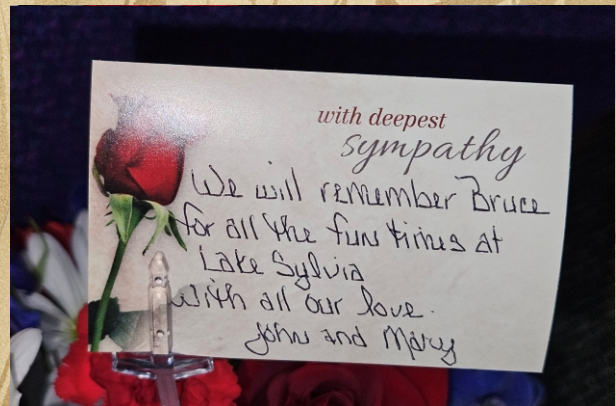 with deepest
sympathy
We will remember Bruce
for all the fun times at
Lake Sylvia
With all our love.
John and Mary